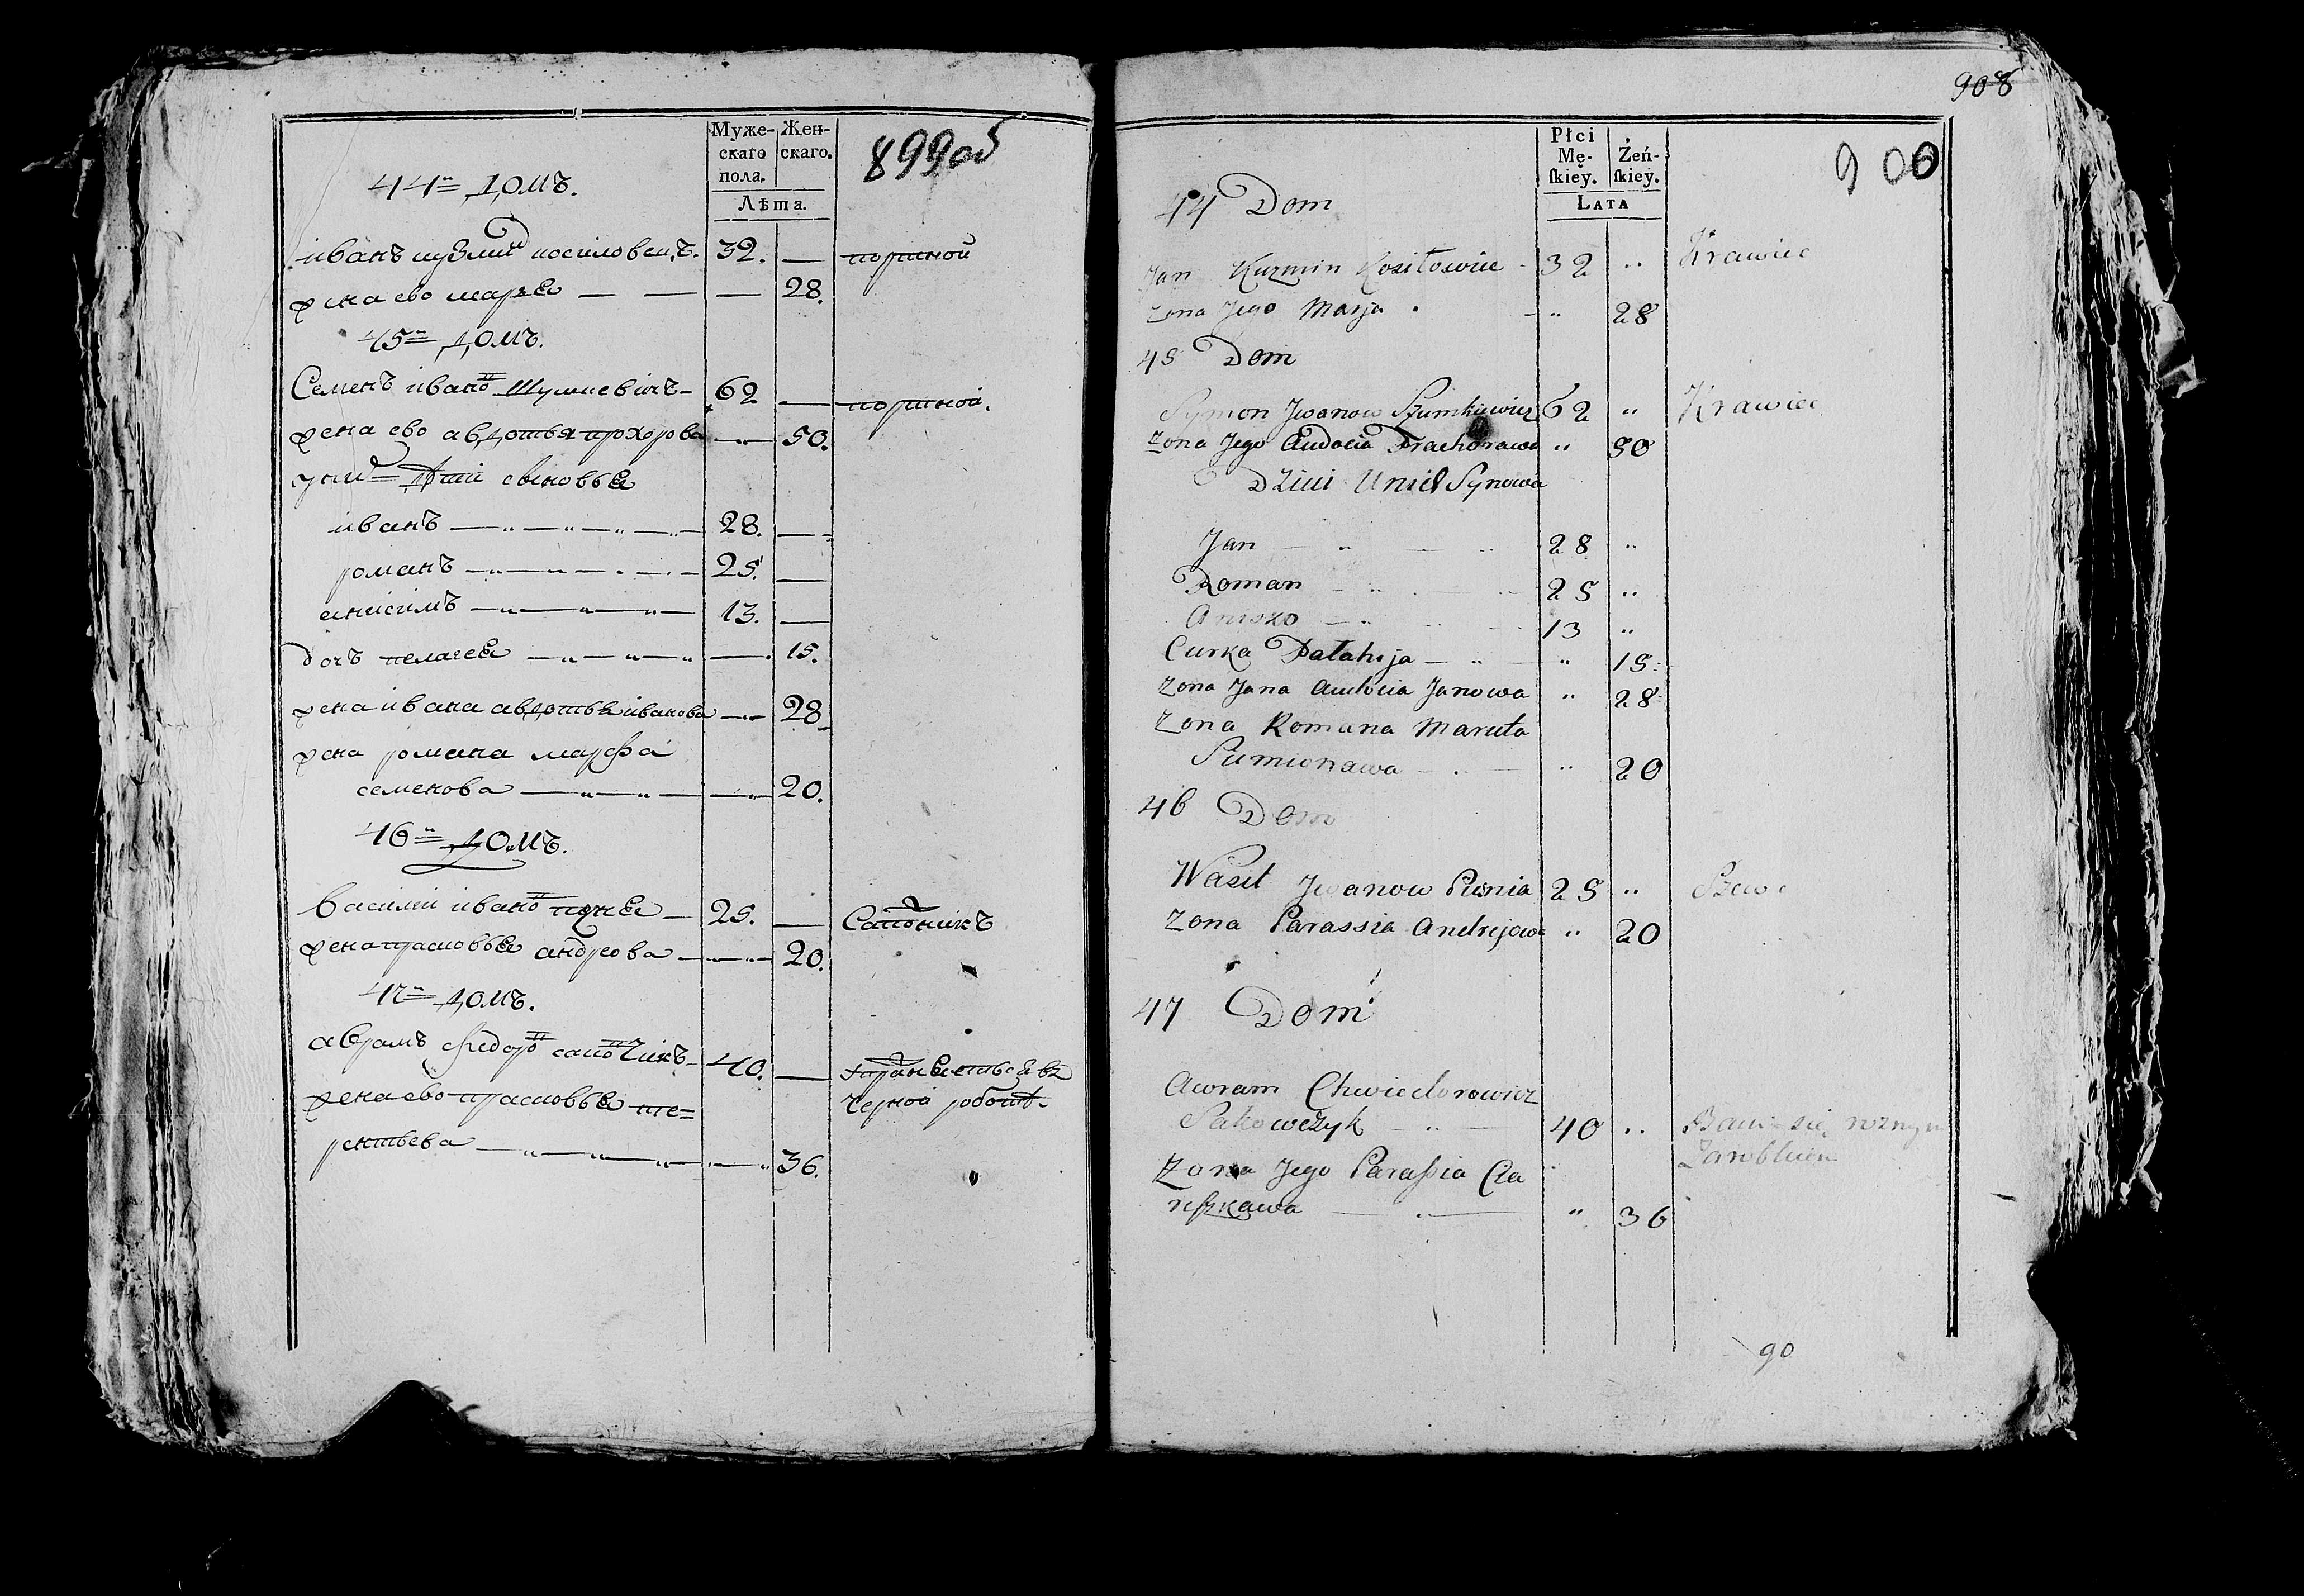 Муже-
скаго
пола.
Жен-
скаго.
Лѣта.
899об
44й Домъ.
иванъ кузмин косиловец.ъ. 32. — портной
жена ево марья — — — 28.
45й Домъ.
Семенъ ивано Шумкевичъ — 62 — портной.
жена ево авдотья прохорова — 50.
у них Дети сыновья
иванъ — 28. —
романъ — 25. —
анисимъ — 13. —
дочь пелагея — 15.
жена ивана авдотья иванова — 28
жена романа марфа
семенова — 20.
46й Домъ.
василий ивано — 25. — Сапожникъ
жена прасковья андреева — 20.
47й Домъ.
аврамъ федоро — 40. —
жена ево прасковья те=
рентьева — 36.
черной работе.
908
Płci
Mę-
skiey.
Żeń-
skiey.
LATA
900
44 Dom
Jan Kuzmin Kosiłowiec 32 " Krawiec
Zona Jego Marja " 28
45 Dom
Symon Jwanow Szumkiewicz 62 " Krawiec
Zona Jego Audocia Prachorawa " 50
Dzieci Unich Synowie
Jan — " — " 28 "
Roman — " — " 25 "
Anisko — " — " 13 "
Curka Pałahija — " — " 15
Zona Jana Audocia Janowa " 28
Zona Romana Maruta
Siemionawa — " 20
46 Dom
Wasil Jwanow 25 " Szewc
Zona Parassia Andrejewa " 20
47 Dom
Awram Chwiedorowicz
40 " Bawi się roznym
Zarobkiem
Zona Jego Parassia Cia
reszkawa — " 36
90